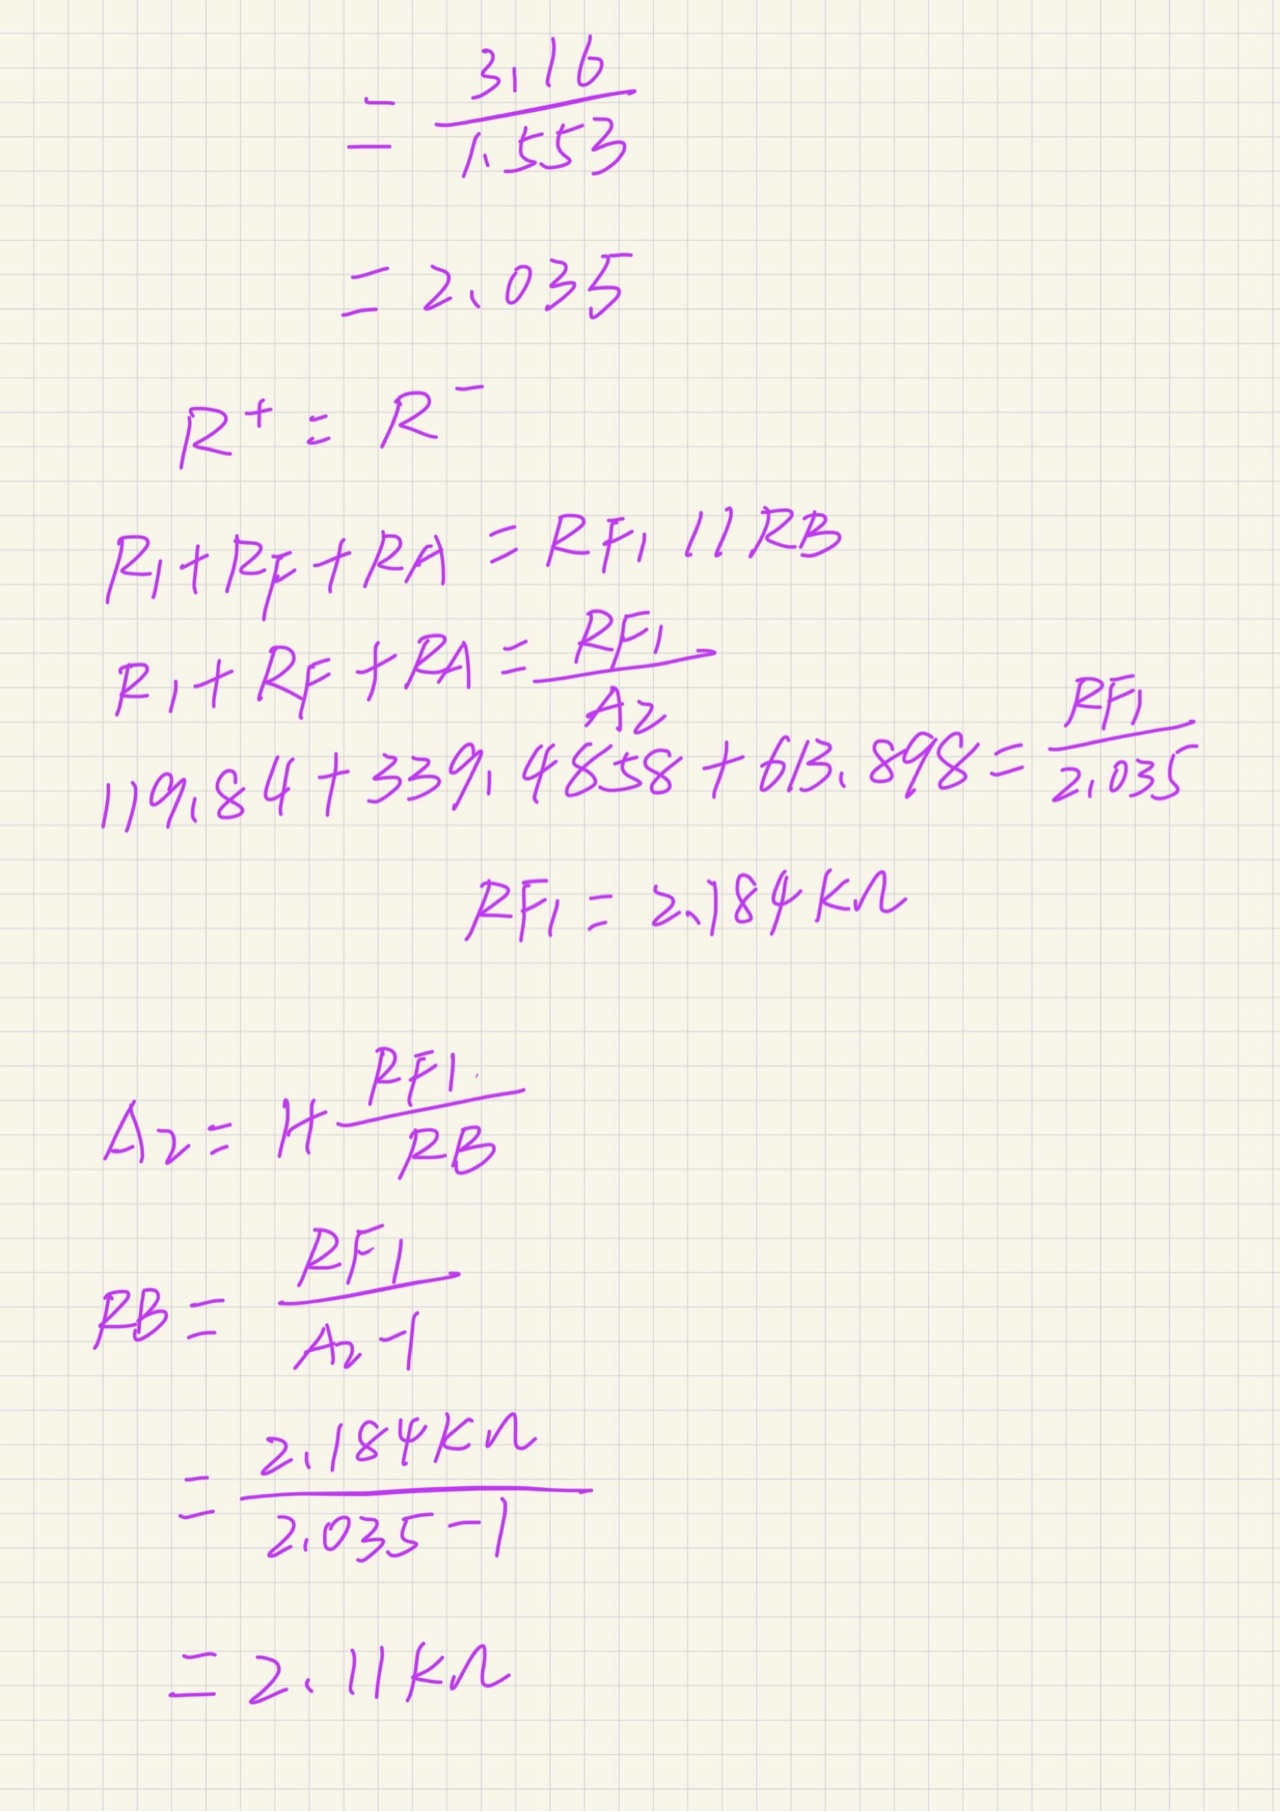 = 3.16 / 1.553
= 2.035
R⁺ = R⁻
R1 + RF + RA = RF1 // RB
R1 + RF + RA = RF1 / A2
119.84 + 339.4858 + 613.898 = RF1 / 2.035
RF1 = 2.184 KΩ
A2 = 1+ RF1 / RB
RB = RF1 / A2 - 1
= 2.184 KΩ / 2.035 - 1
= 2.11 KΩ